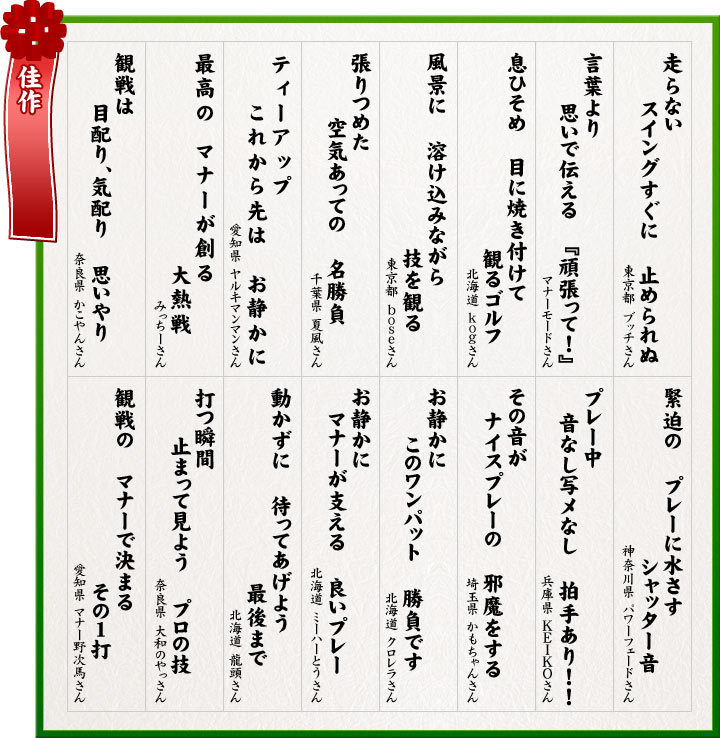 佳作
走らない
スイングすぐに 止められぬ
東京都 ブッチさん
言葉より
思いで伝える 『頑張って!』
マナーモードさん
息ひそめ 目に焼き付けて
観るゴルフ
北海道 kogさん
風景に 溶け込みながら
技を観る
東京都 boseさん
張りつめた
空気あっての 名勝負
千葉県 夏風さん
ティーアップ
これから先は お静かに
愛知県 ヤルキマンマンさん
最高の マナーが創る
大熱戦
みっちーさん
観戦は
目配り、気配り 思いやり
奈良県 かこやんさん
緊迫の プレーに水さす
シャッター音
神奈川県 パワーフェードさん
プレー中
音なし写メなし 拍手あり!!
兵庫県 KEIKOさん
その音が
ナイスプレーの 邪魔をする
埼玉県 かもちゃんさん
お静かに
このワンパット 勝負です
北海道 クロレラさん
お静かに
マナーが支える 良いプレー
北海道 ミーハーとうさん
動かずに 待ってあげよう
最後まで
北海道 龍頭さん
打つ瞬間
止まって見よう プロの技
奈良県 大和のやっさん
観戦の マナーで決まる
その1打
愛知県 マナー野次馬さん